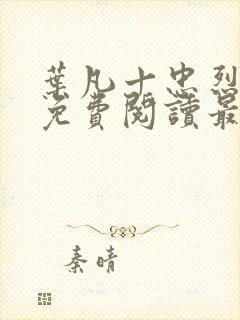 葉凡十忠烈
免費閱讀最
秦晴